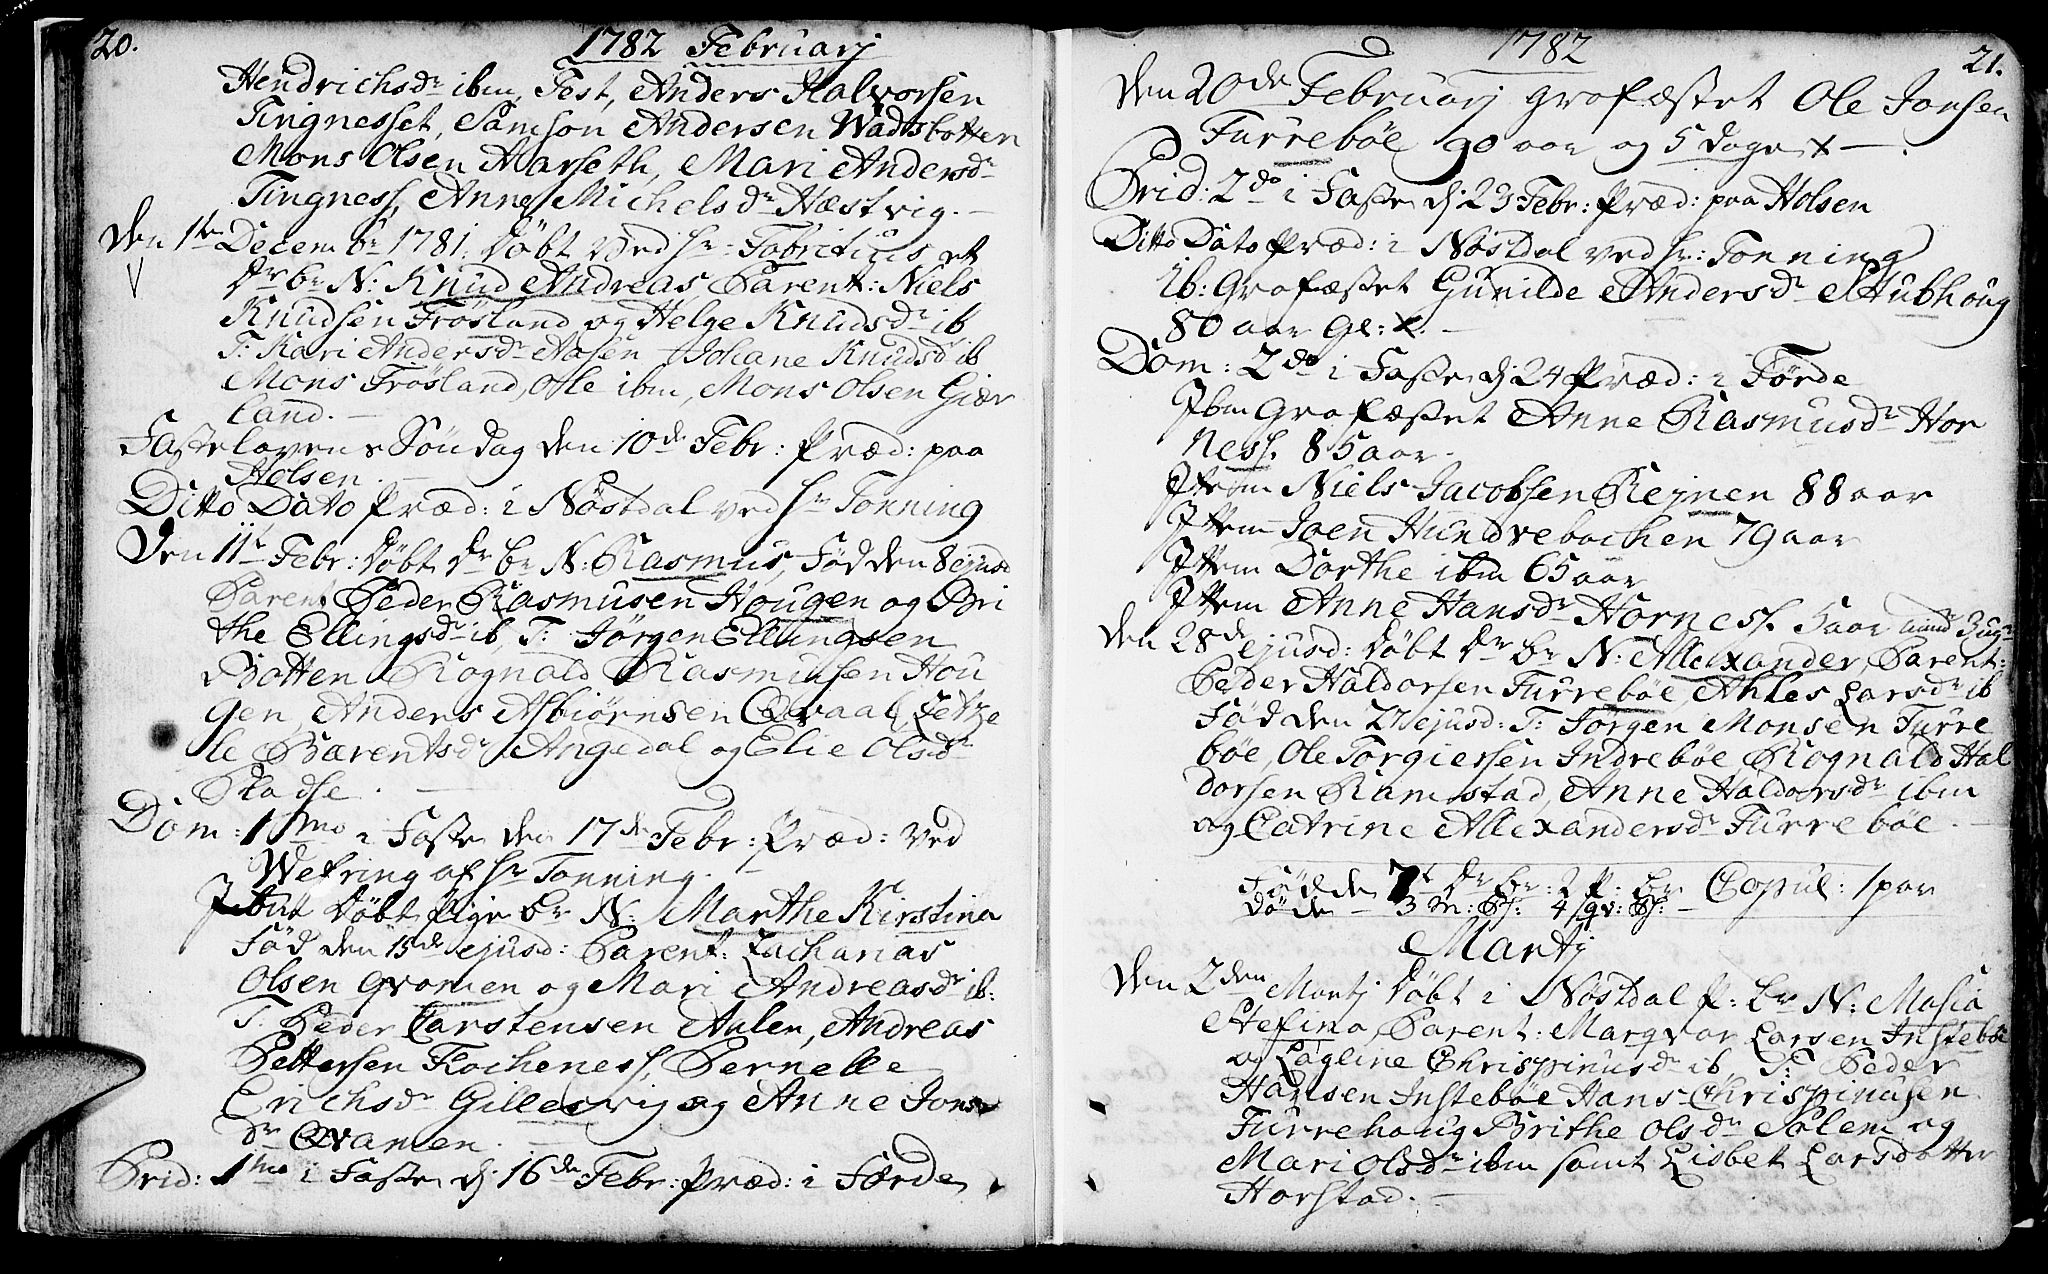 20.
1782 Februarj
Hendrichsdr ibm, Test, Anders Halvorsen
Tingnesset, Samson Andersen Wadsbotten
Mons Olsen Aarseth, Mari Andersdr
Tingness, Anne Michelsdr Hæstvig. —
Den 1te Decembr 1781. døbt ved Hr: Fabritius et
dr. br N: Knud Andreas, Parent: Niels
Knudsen Frøsland og Helge Knudsdr ib
T: Kari Andersdr Aasen Johane Knudsd ib
Mons Frøsland, Ole ibm, Mons Olsen Giær
land. —
Fastelavens Søndag den 10de Febr: Præd: paa
Holsen. —
Ditto Dato Præd: i Nøstdal ved Hr Tonning
Den 11t Febr: døbt dr br N: Rasmus, Fød den 8 ejusd
Parent Peder Rasmusen Hougen og Bri
the Ellingsdr ib, T: Jørgen Ellingsen
Botten Rognald Rasmusen Hou
gen, Anders Asbiørnsen Qvaal, Zetze
le Bærentsdr Angedal og Elie Olsdr
Skadse. —
Dom: 1mo i Faste den 17de Febr: Præd: ved
Wefring af Hr Tonning. —
Ibm døbt Pige br N: Marthe Kirstina
Fød den 15de ejusd: Parent: Zacharias
Olsen Qvamen og Mari Andreasdr ib:
T: Peder Carstensen Aalen, Andreas
Pettersen Flochenes, Pernelle
Erichsdr Gillesvig og Anne Jons
dr Qvamen. —
Prid: 1mo i Faste dj 16de Febr: Præd: i Førde
1782
21.
Den 20de Februarj grafæstet Ole Jonsen
Furrebøe 90 aar og 5 dage × — .
Prid: 2do i Faste dj 23 Febr: Præd: paa Holsen
Ditto Dato Præd: i Nøstdal ved Hr: Tonning
ib: Grafæstet Gurilde Andersdr Stubhoug
80 aar gl: ×. —
Dom: 2do i Faste dj 24 Præd: i Førde
Ibm Grafæstet Anne Rasmusdr Hor
ness. 85 aar.
Ittem Niels Jacobsen Rejnen 88 aar
Ittem Joen Hundvebachen 79 aar
Ittem Dorthe ibm 65 aar
Ittem Anne Hansdr Horness. 5 aar 3 ugr
Den 28de ejusd: døbt dr br N: Allexander, Parent:
Peder Haldorsen Furrebøe, Ahles Larsdr ib
Fød den 27 ejusd: T: Jørgen Monsen Furre
bøe, Ole Torgiersen Indrebøe Rognald Hal
dorsen Ramstad, Anne Haldorsdr ibm
og Catrine Allexandersdr Furrebøe. —
Fødde 7t dr br: 2 p: br Copul: 1 par
døde — 3 m: Kj: 4 qv: Kj: —
Martj
Den 2den Martj døbt i Nøstdal P: br N: Masia
Stefina, Parent: Margvar Larsen Instebøe
og Zagline Chrispinusdr ib, T: Peder
Hansen Instebøe Hans Chrispinusen
Furrehoug Brithe Olsdr Solem og
Mari Olsdr ibm samt Lisbet Larsdatter
Horstad. —